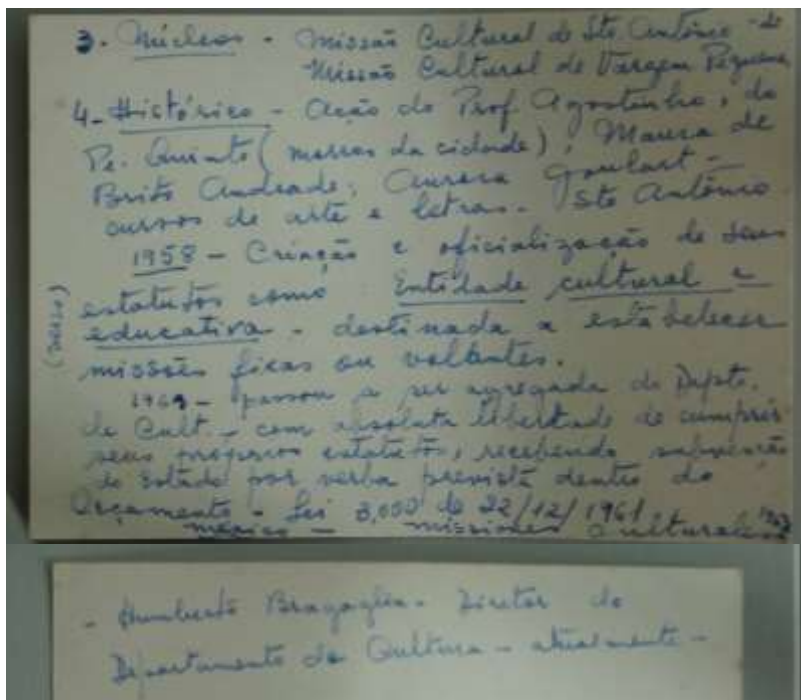 3. Núcleos - Missão Cultural de Sto. Antônio - de
Missão Cultural de Vargem Pequena
4 - Histórico - Ação do Prof. Agostinho, do
Pe. Quinto (morros da cidade), Maura de
Brito Andrade; Aurera Goulart -
cursos de arte e letras. Sto Antônio
1958 - Criação e oficialização de seus
estatutos como Entidade cultural e
educativa - destinada a estabelecer
missões fixas ou volantes.
1969 - passou a ser agregada do Depto.
de Cult. - com absoluta liberdade de cumprir
seus proprios estatutos, recebendo subvenção
do Estado por verba prevista dentro do
Orçamento - Lei 3,000 de 22/12/1961.
México - missiones Culturales
- Humberto Bragaglia - Diretor do
Departamento de Cultura - atualmente -